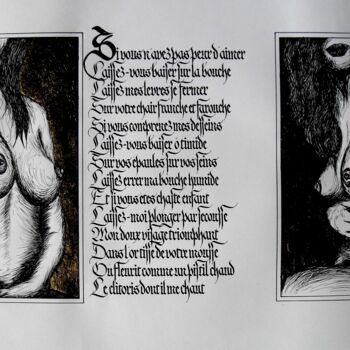 Si vous n'avez pas peur d'aimer
Laissez-vous baiser sur la bouche
Laissez mes levres se fermer
Sur votre chair franche et farouche
Si vous comprenez mes desseins
Laissez-vous baiser o timide
Sur vos epaules sur vos seins
Laissez errer ma bouche humide
Et si vous etes chaste enfant
Laissez-moi plonger par secousse
Mon doux visage triomphant
Dans l'or tisse de votre mousse
Ou fleurit comme un pistil chaud
Le clitoris dont il me chaut